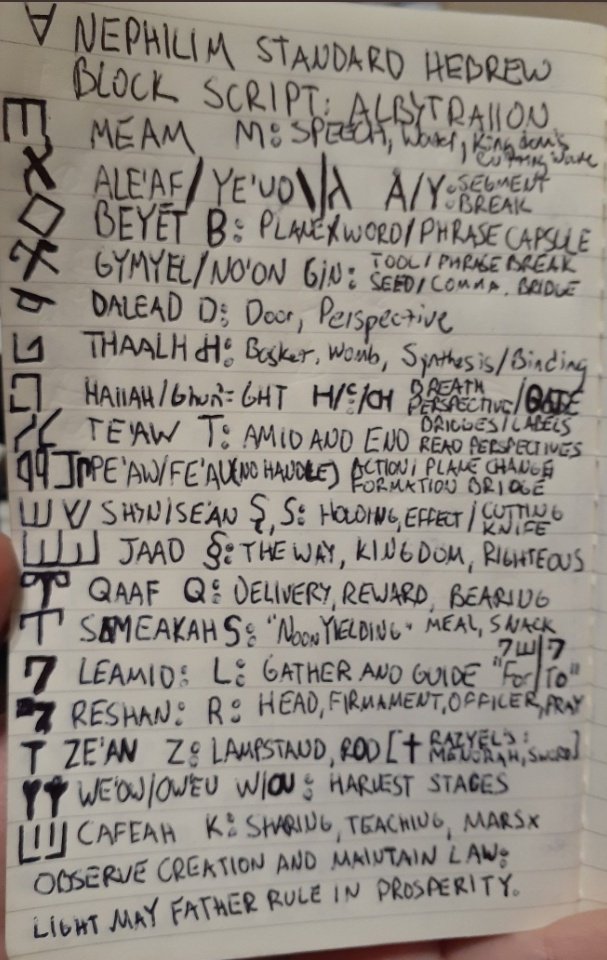 NEPHILIM STANDARD HEBREW
BLOCK SCRIPT: ALBYTRAIION
MEAM M: SPEECH, Water, Kingdom's Cutting Wave
ALE'AF/YE'UD \/λ A/Y: SEGMENT BREAK
BEYET B: PLANE/WORD/PHRASE CAPSULE
GYMYEL/NO'ON G/N: TOOL/PHRASE BREAK SEED/COMMA. BRIDGE
DALEAD D: Door, Perspective
THAALH : Basket, Womb, Synthesis/Binding
HAIIAH/ GHT H/ /CH BREATH PERSPECTIVE/GATE
TE'AW T: AMID AND END BRIDGES/LABELS READ PERSPECTIVES
PE'AW/FE'AU(NO HANDLE) ACTION/PLANE CHANGE FORMATION BRIDGE
SHYN/SE'AN Ș, S: HOLDING, EFFECT/CUTTING KNIFE
JAAD §: THE WAY, KINGDOM, RIGHTEOUS
QAAF Q: DELIVERY, REWARD, BEARING
SAMEAKAH S: "NOON YIELDING" MEAL, SNACK
LEAMID: L: GATHER AND GUIDE "For/To"
RESHAN: R: HEAD, FIRMAMENT, OFFICER, PRAY
ZE'AN Z: LAMPSTAND, ROD [† RAZYEL'S: MENORAH, SWORD]
WE'OW/OW'EU W/OU: HARVEST STAGES
CAFEAH K: SHARING, TEACHING, MARSX
OBSERVE CREATION AND MAINTAIN LAW:
LIGHT MAY FATHER RULE IN PROSPERITY.